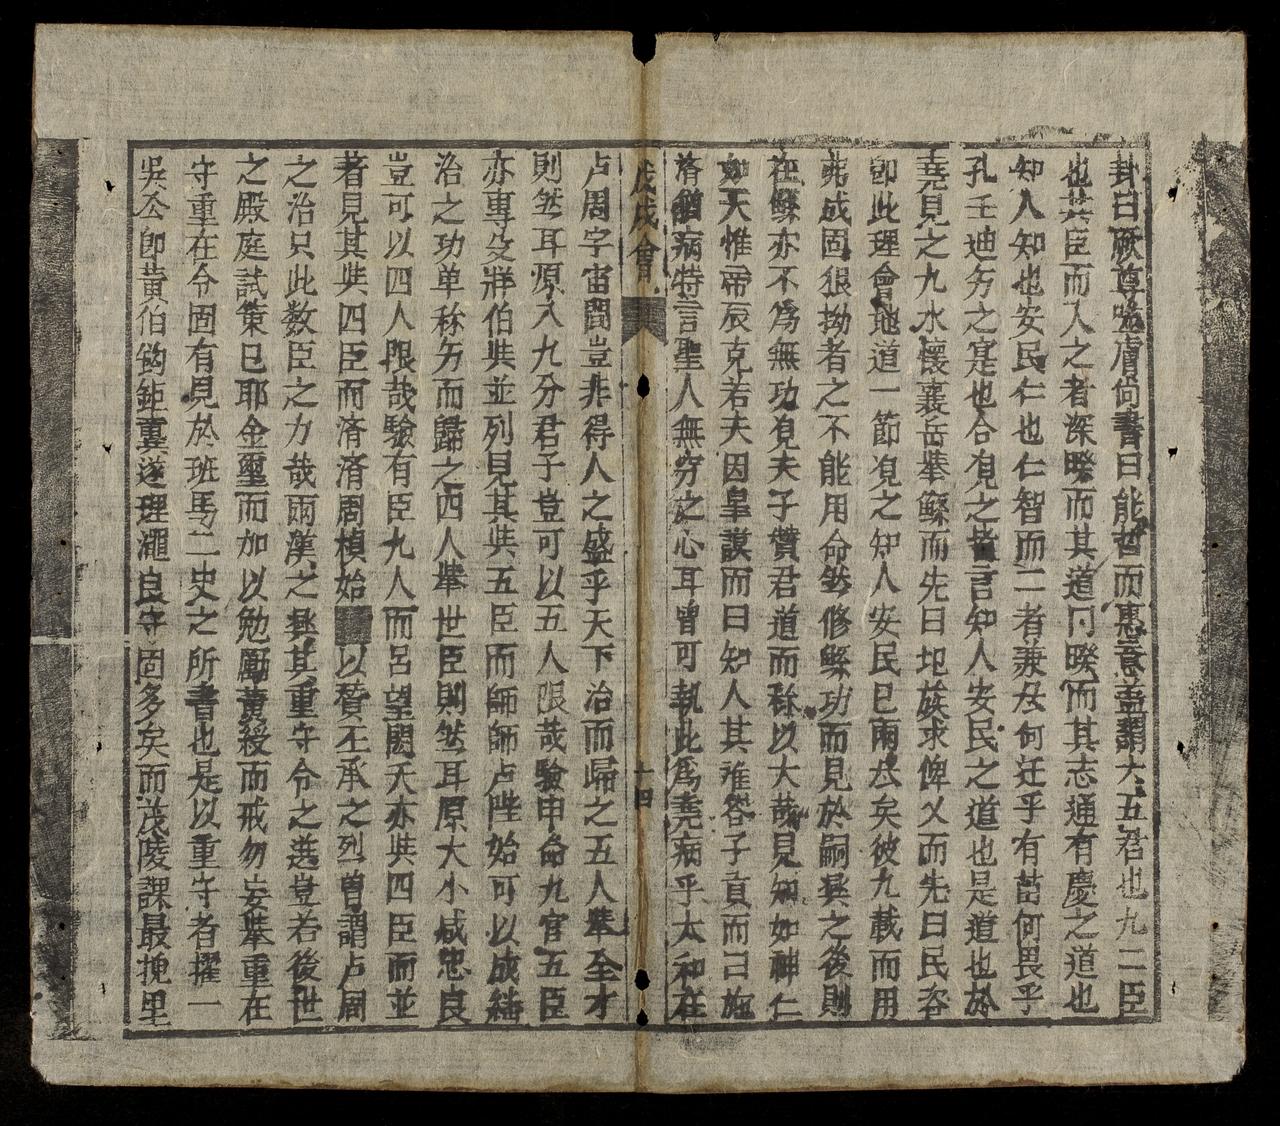 卦曰厥尊噬膚尚書曰能哲而惠意盖謂六五君也九二臣
也其臣而入之者深睽而其道同睽而其志通有慶之道也
知人知也安民仁也仁智而二者兼尽何迁乎有苗何畏乎
孔壬迪吉之寔也合見之者言知人安民之道也是道也於
堯見之九水懷襄岳举鯀而先曰圯族求俾乂而先曰民咨
即此理會地道一節見之知人安民已兩尽矣彼九載而用
弗成固狠拗者之不能用命然修鯀功而見於嗣兴之後則
在鯀亦不為無功見夫子賛君道而称以大哉見知如神仁
如天惟帝辰克若夫因皋謨而曰知人其难咨子貢而曰施
済猶病特言聖人無穷之心耳曾可執此為堯病乎太和在
戊戌會 十四
卢周字宙間豈非得人之盛乎天下治而歸之五人举至才
則然耳原八九分君子豈可以五人限哉驗申命九官五臣
亦專殳牂伯兴並列見其兴五臣而師師卢陛始可以成緒
治之功单称方而歸之四人举世臣則然耳原大小咸忠良
豈可以四人限哉驗有臣九人而呂望閎夭亦兴四臣而並
者見其兴四臣而済済周楨始 以賛丕承之列曾謂卢周
之治只此数臣之力哉雨漢之兴其重守令之选豈若後世
之殿庭試策已耶金璽而加以勉勵黄綬而戒勿妄举重在
守重在令固有見於班馬二史之所書也是以重守者擢一
吳公即黄伯鈎鉅龔遂理澠良守固多矣而茂陵課最挽里